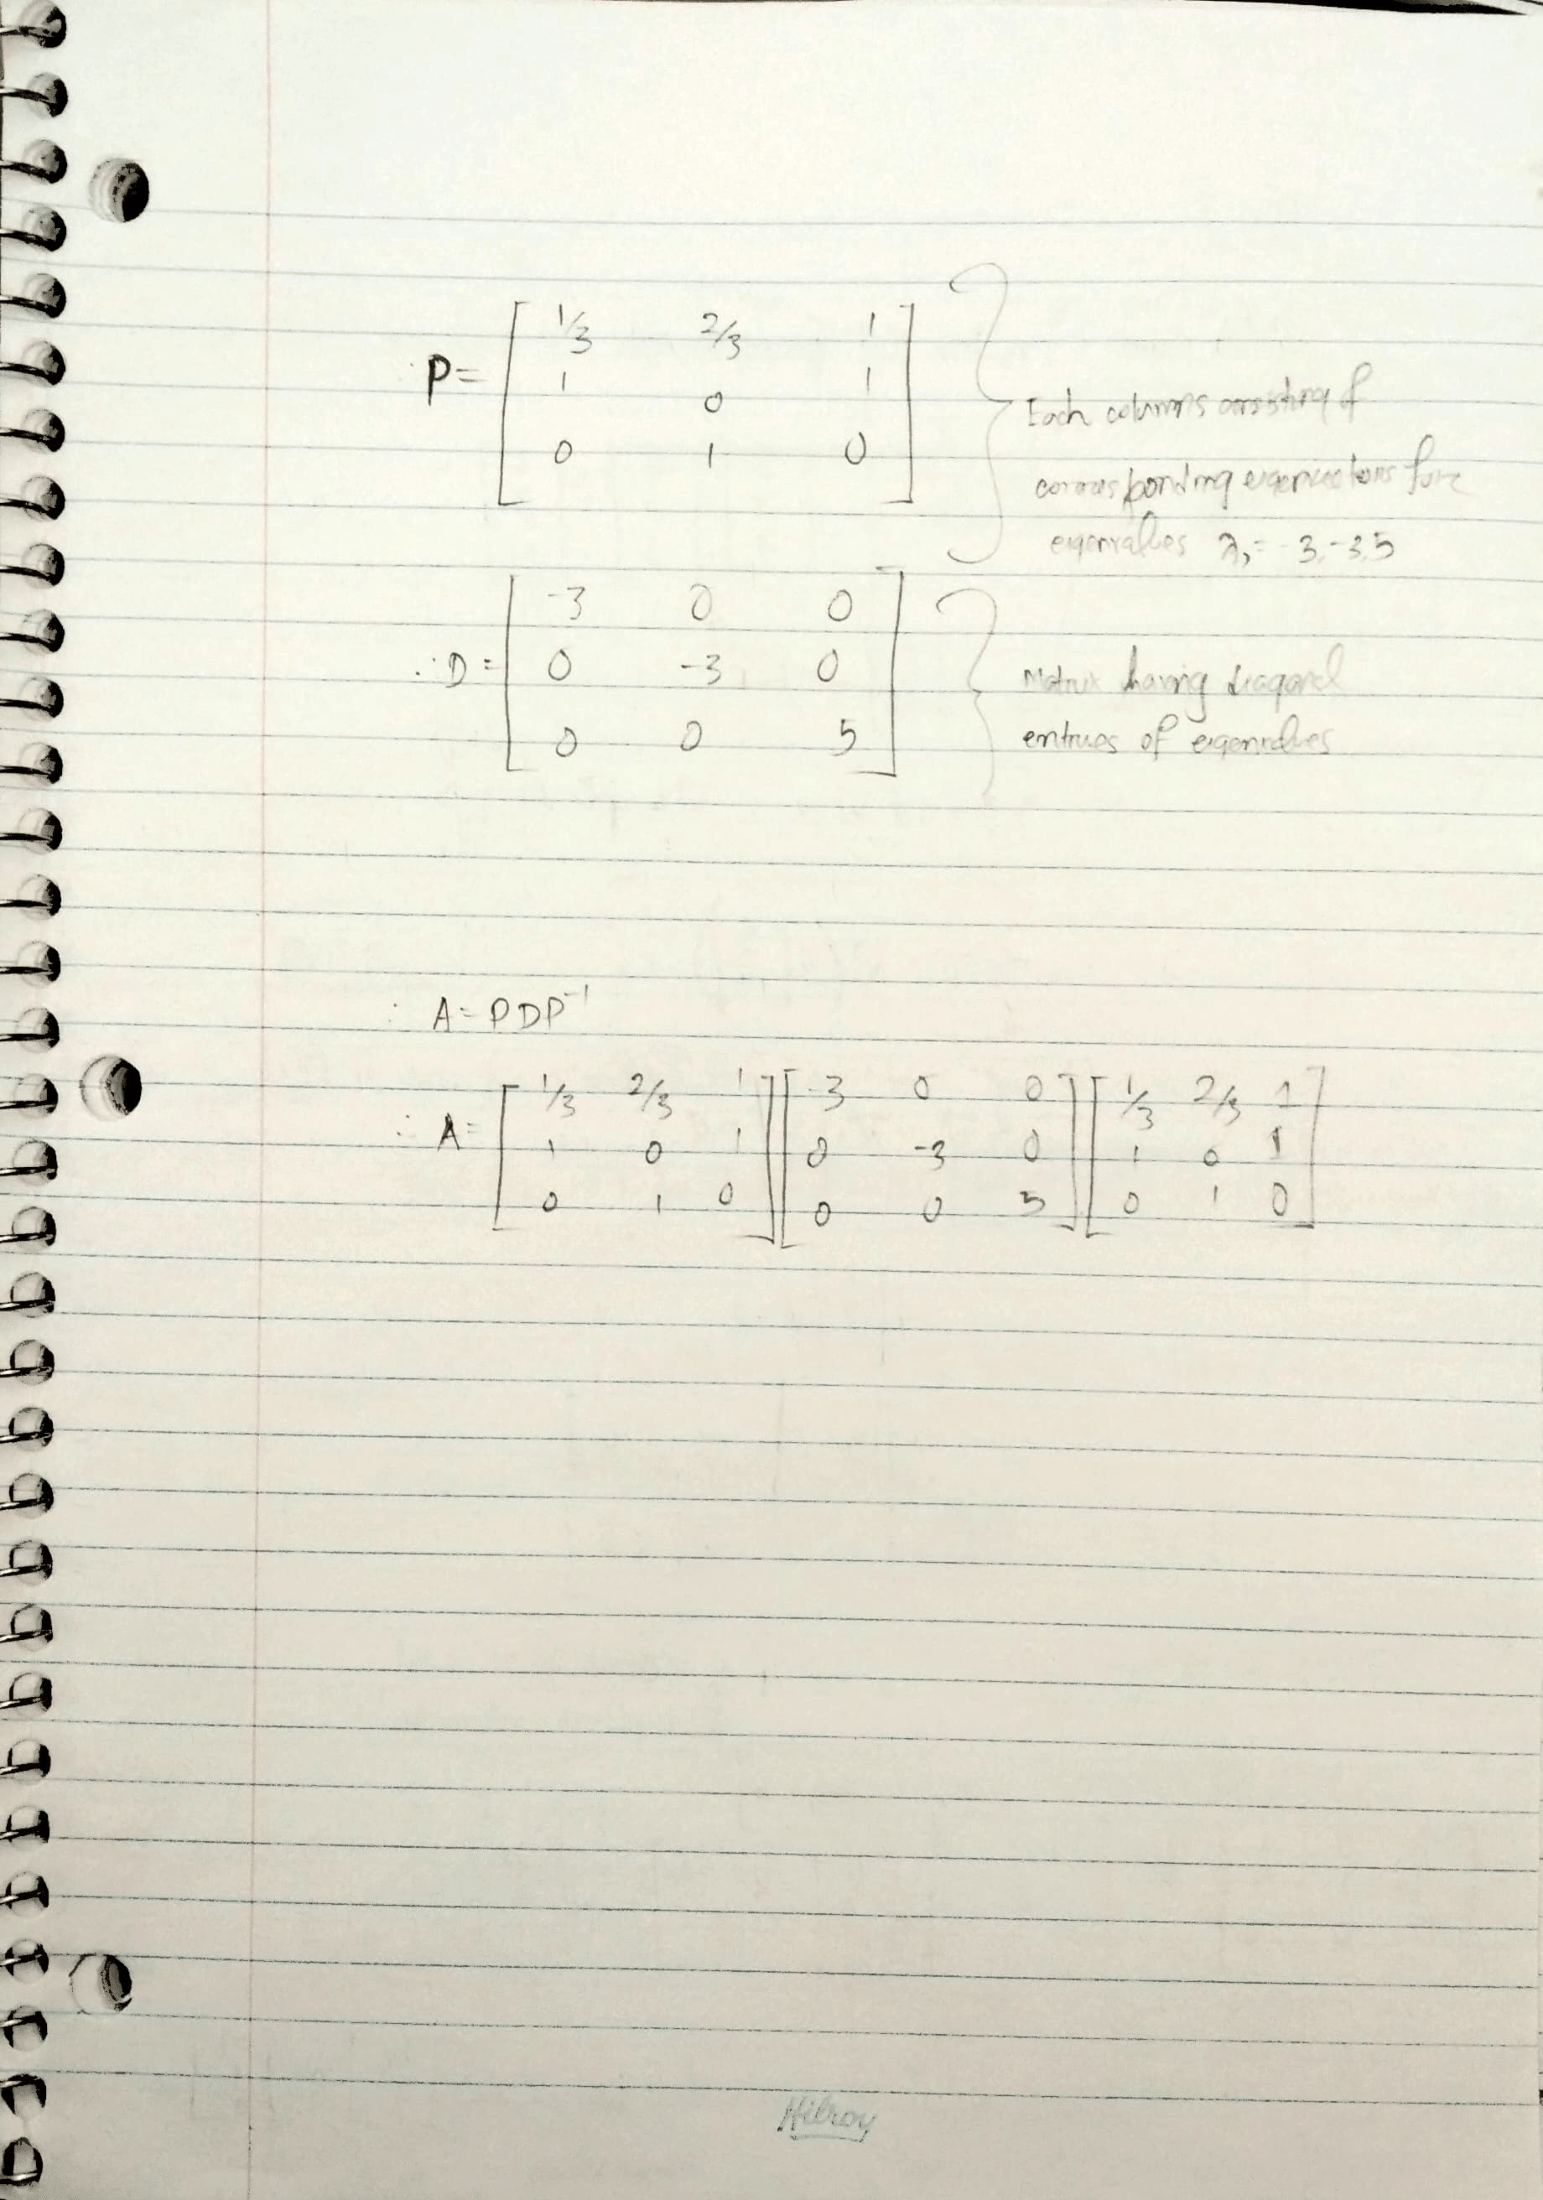 P= [ 1/3 2/3 1
1 0 1
0 1 0 ]
Each columns consisting of
corresponding eigenvectors for
eigenvalues λ, = -3, -3, 5
∴ D = [ -3 0 0
0 -3 0
0 0 5 ]
Matrix having diagonal
entries of eigenvalues
∴ A = PDP⁻¹
∴ A = [ 1/3 2/3 1 ] [ -3 0 0 ] [ 1/3 2/3 1 ]
1 0 1 0 -3 0 1 0 1
0 1 0 0 0 5 0 1 0
Hilroy